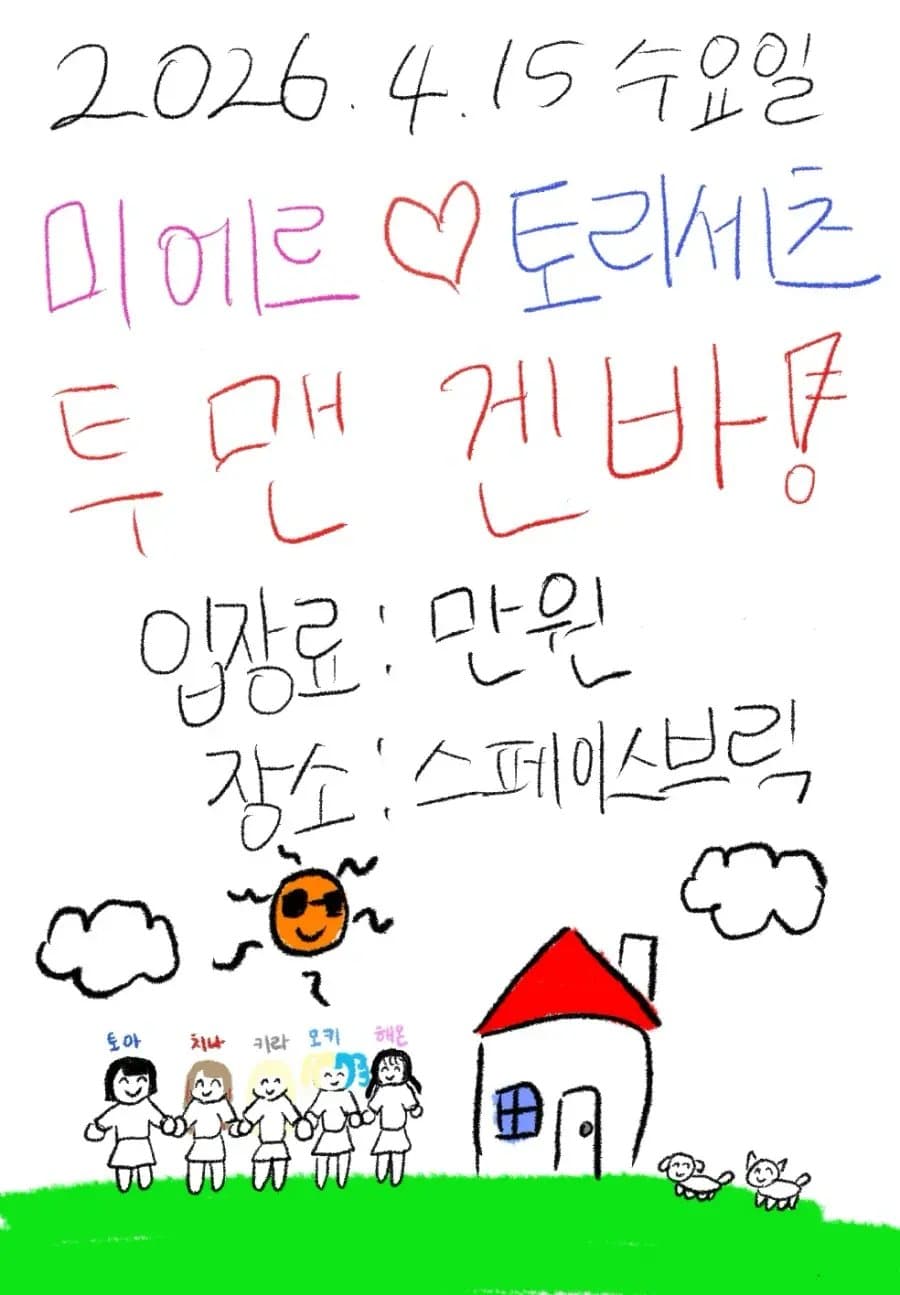 2026.4.15 수요일
미에르 ♡ 토리세츠
투맨 겐바!
입장료: 만원
장소: 스페이스브릭
토아 치나 키라 모키 해온